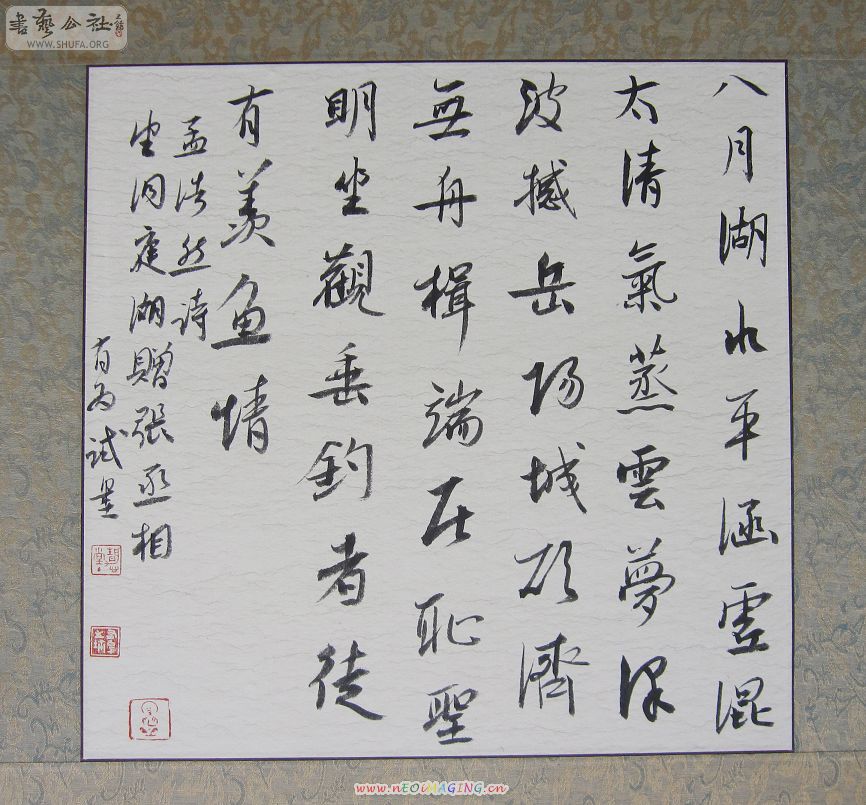 八月湖水平涵虛混
太清氣蒸雲夢澤
波撼岳陽城欲濟
無舟楫端居恥聖
明坐觀垂釣者徒
有羨魚情
孟浩然诗
望洞庭湖贈張丞相
有為試墨
書藝公社
WWW.SHUFA.ORG
www.nEOiMAGING.cn